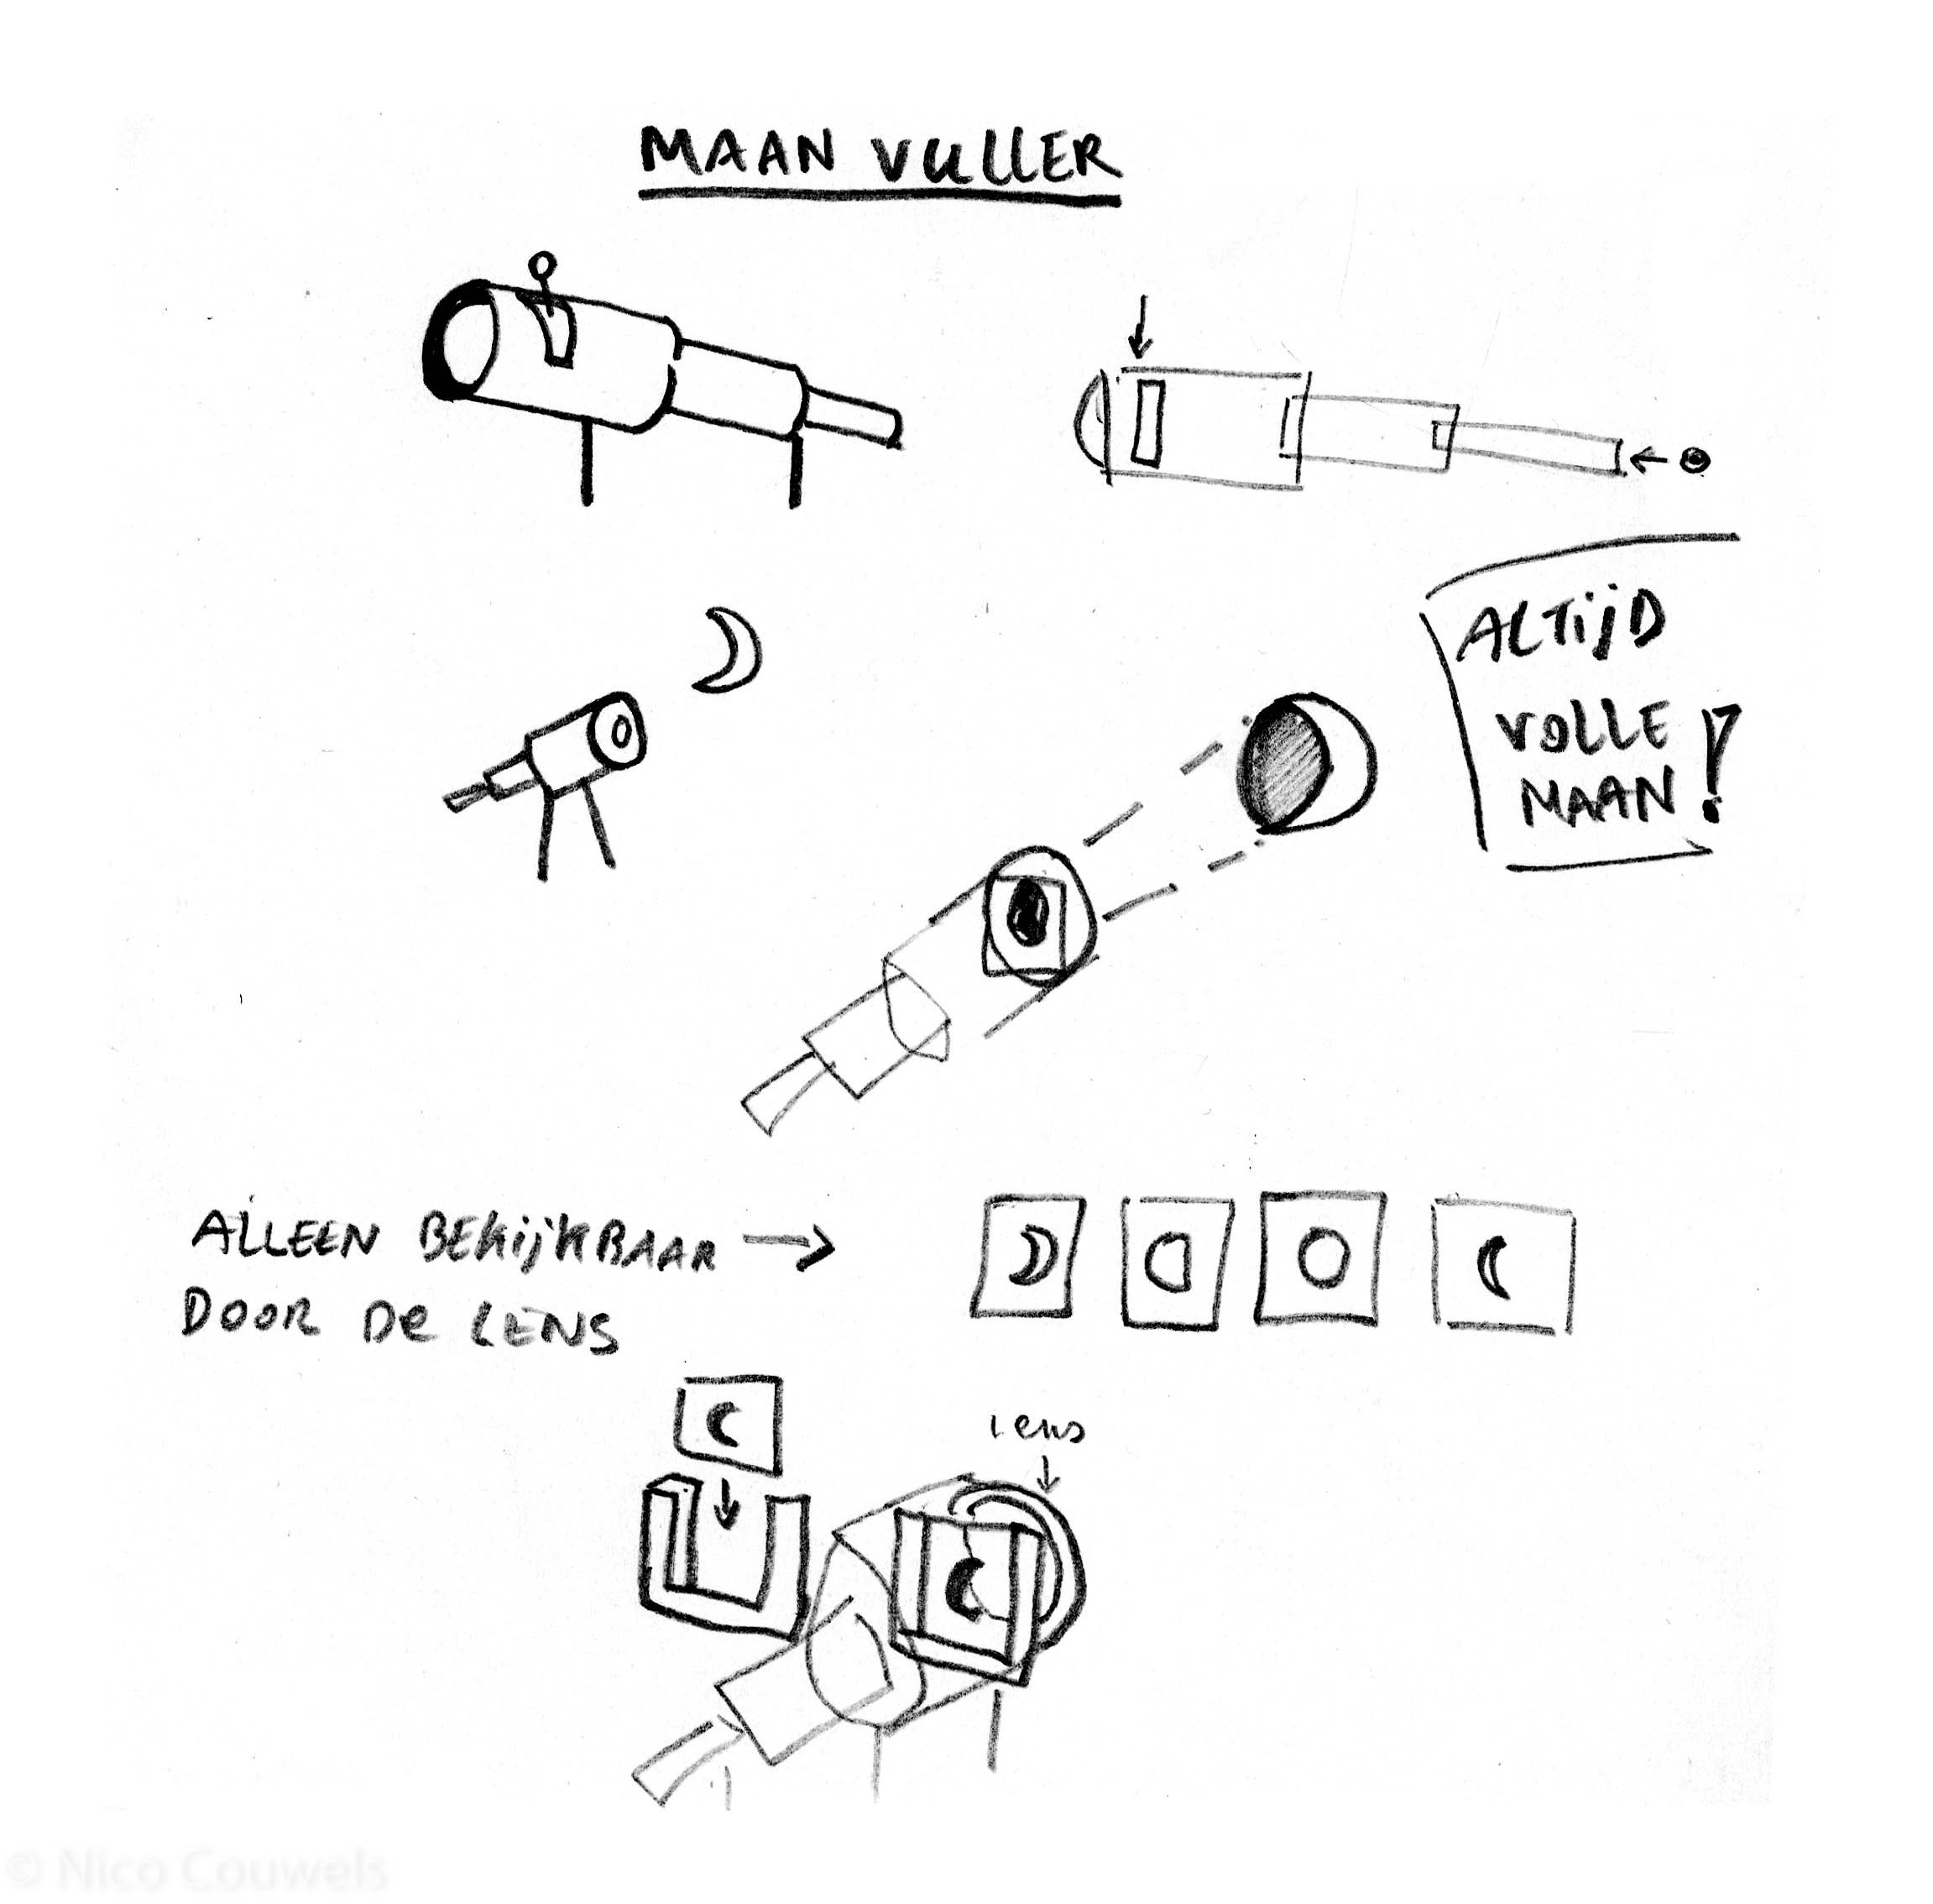 MAAN VULLER
ALTIJD
VOLLE
MAAN!
ALLEEN BEKIJKBAAR →
DOOR DE LENS
lens
© Nico Couwels